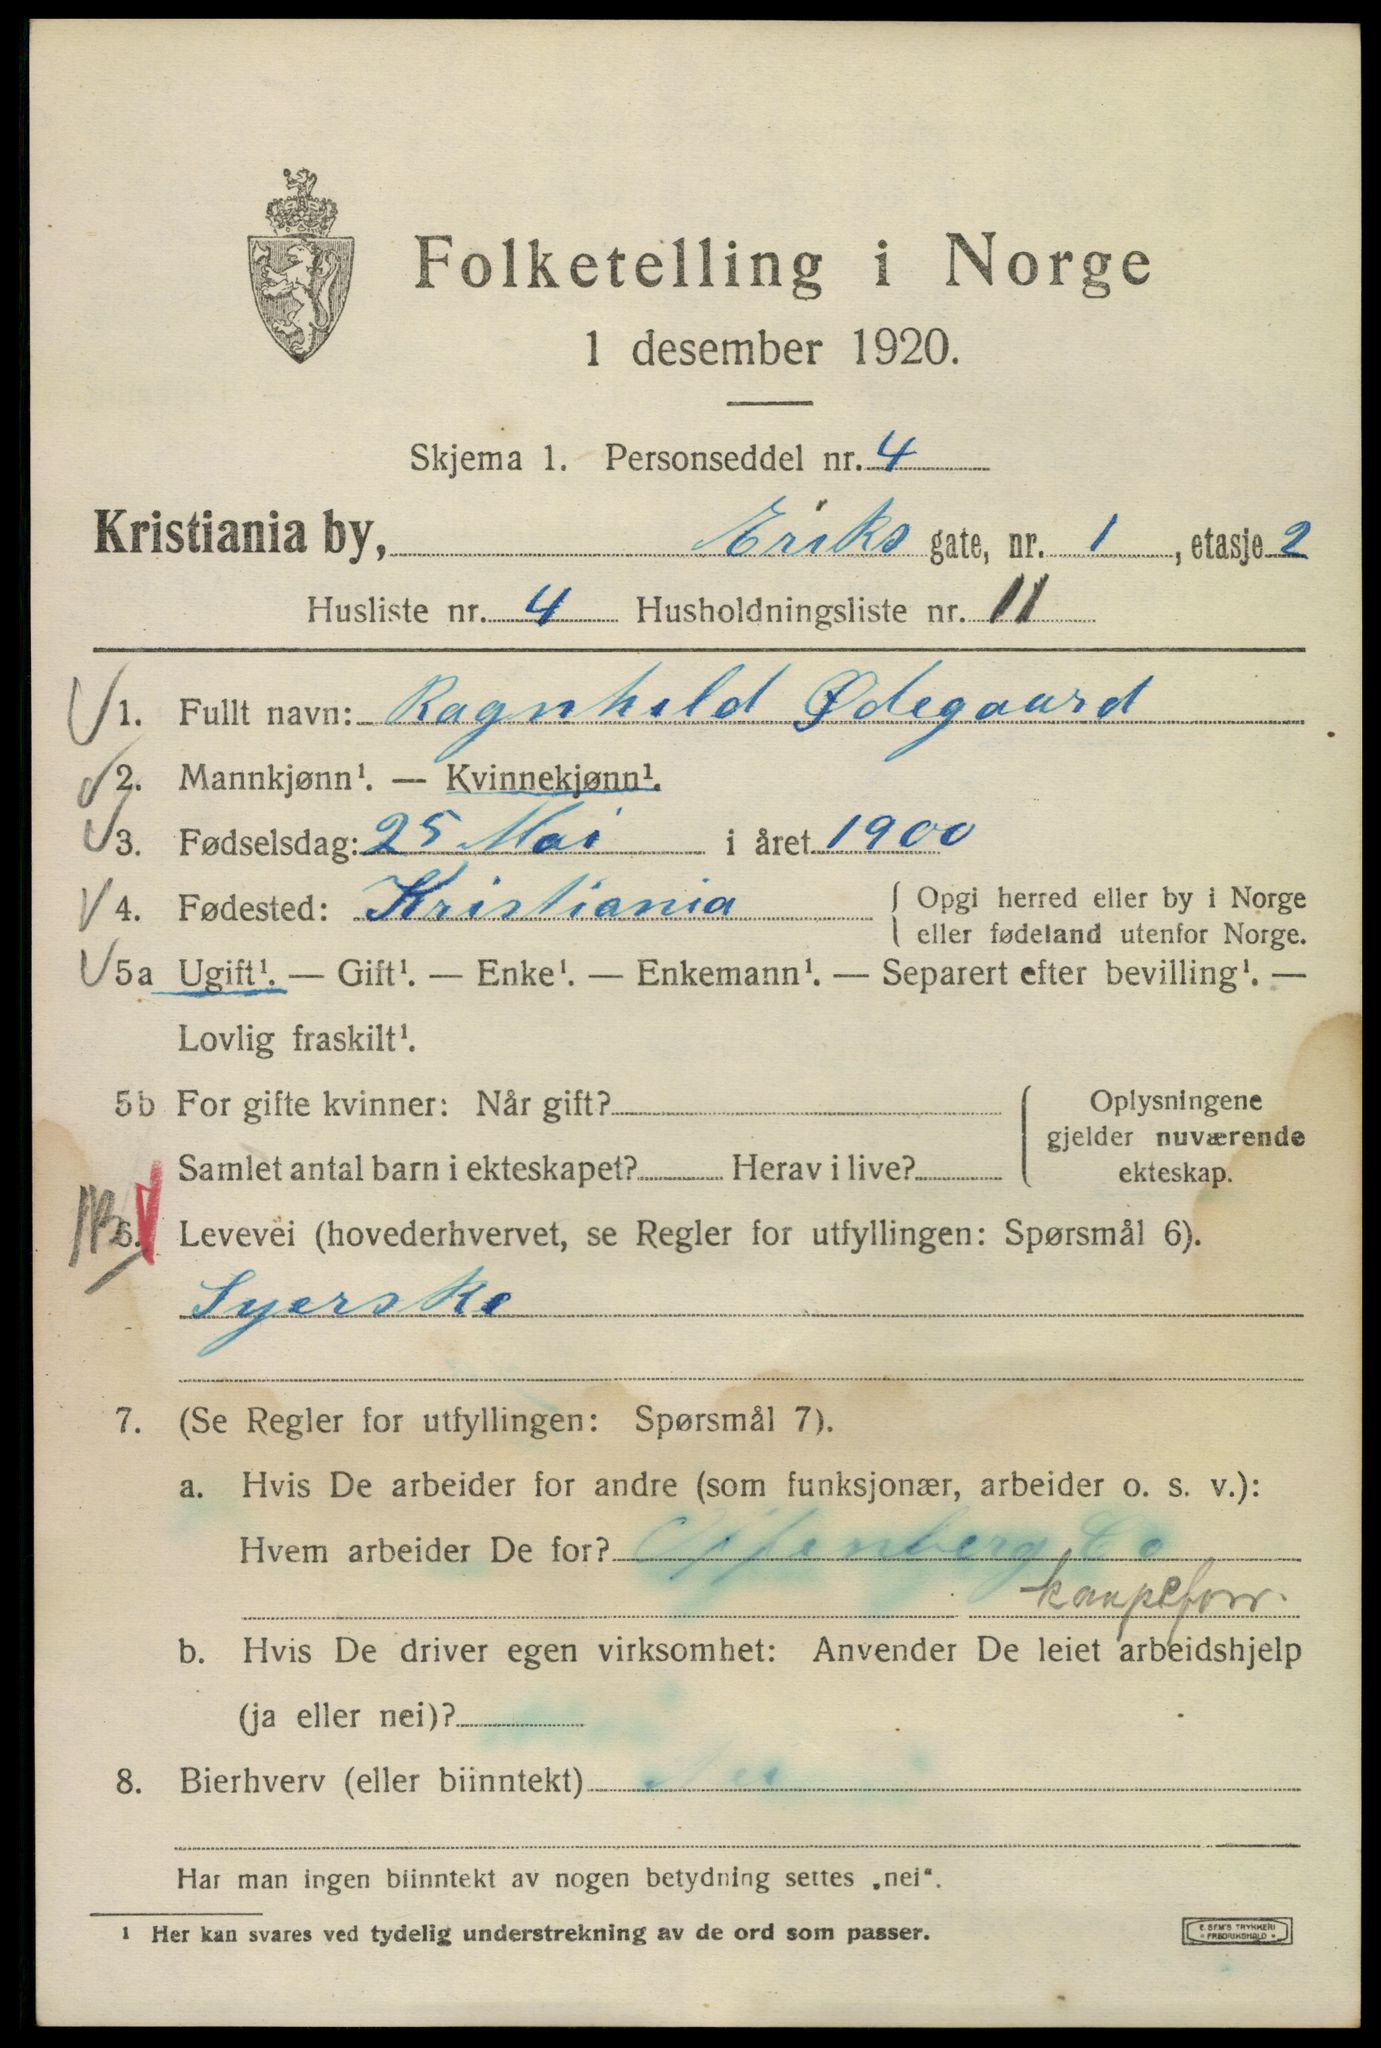 Folketelling i Norge
1 desember 1920.
Skjema 1. Personseddel nr. 4
Kristiania by, Eriks gate, nr. 1, etasje 2
Husliste nr. 4 Husholdningsliste nr. 11
1. Fullt navn: Ragnhild Ødegaard
2. Mannkjønn¹. — Kvinnekjønn¹.
3. Fødselsdag: 25 Mai i året 1900
4. Fødested: Kristiania { Opgi herred eller by i Norge
eller fødeland utenfor Norge.
5a Ugift¹. — Gift¹. — Enke¹. — Enkemann¹. — Separert efter bevilling¹. —
Lovlig fraskilt¹.
5b For gifte kvinner: Når gift? { Oplysningene
gjelder nuværende
Samlet antal barn i ekteskapet? Herav i live? ekteskap.
6. Levevei (hovederhvervet, se Regler for utfyllingen: Spørsmål 6).
Syerske
7. (Se Regler for utfyllingen: Spørsmål 7).
a. Hvis De arbeider for andre (som funksjonær, arbeider o. s. v.):
Hvem arbeider De for? Oppenberg Co
kaapeforr.
b. Hvis De driver egen virksomhet: Anvender De leiet arbeidshjelp
(ja eller nei)?
8. Bierhverv (eller biinntekt) Nei
Har man ingen biinntekt av nogen betydning settes „nei“.
1 Her kan svares ved tydelig understrekning av de ord som passer.
E. SEM'S TRYKKERI
FREDRIKSHALD